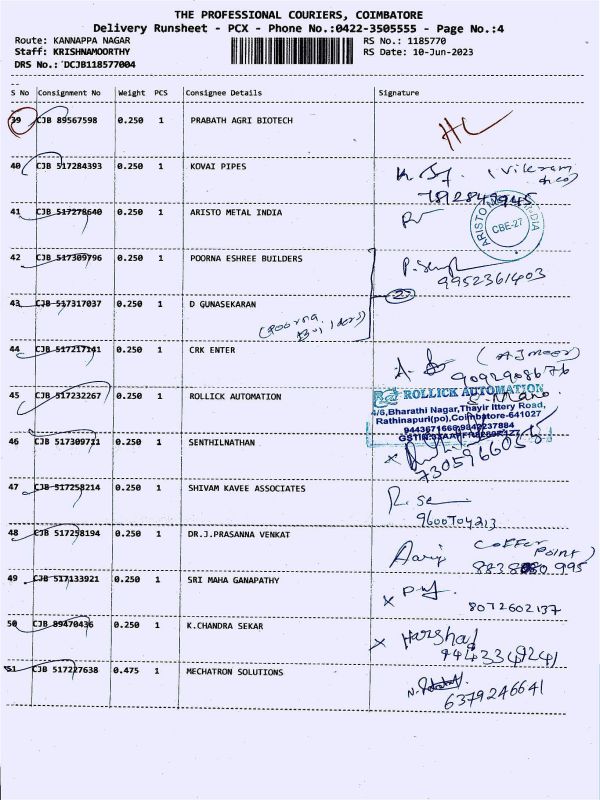 THE PROFESSIONAL COURIERS, COIMBATORE
Delivery Runsheet - PCX - Phone No.:0422-3505555 - Page No.:4
Route: KANNAPPA NAGAR RS No.: 1185770
Staff: KRISHNAMOORTHY RS Date: 10-Jun-2023
DRS No.: DCJB118577004
S No Consignment No Weight PCS Consignee Details Signature
39 CJB 89567598 0.250 1 PRABATH AGRI BIOTECH
40 CJB 517284393 0.250 1 KOVAI PIPES
(Vikram
41 CJB 517278640 0.250 1 ARISTO METAL INDIA
CBE-27
42 CJB 517309796 0.250 1 POORNA ESHREE BUILDERS
9952361403
43 CJB 517317037 0.250 1 D GUNASEKARAN
(Poorna
44 CJB 517217141 0.250 1 CRK ENTER
(AJmeer)
9092908676
45 CJB 517232267 0.250 1 ROLLICK AUTOMATION
ROLLICK AUTOMATION
4/6,Bharathi Nagar,Thayir Ittery Road,
Rathinapuri(po),Coimbatore-641027
46 CJB 517309711 0.250 1 SENTHILNATHAN
47 CJB 517258214 0.250 1 SHIVAM KAVEE ASSOCIATES
9600704213
48 CJB 517258194 0.250 1 DR.J.PRASANNA VENKAT
49 CJB 517133921 0.250 1 SRI MAHA GANAPATHY
8072602137
50 CJB 89470436 0.250 1 K.CHANDRA SEKAR
Harshad
51 CJB 517227638 0.475 1 MECHATRON SOLUTIONS
6379246641